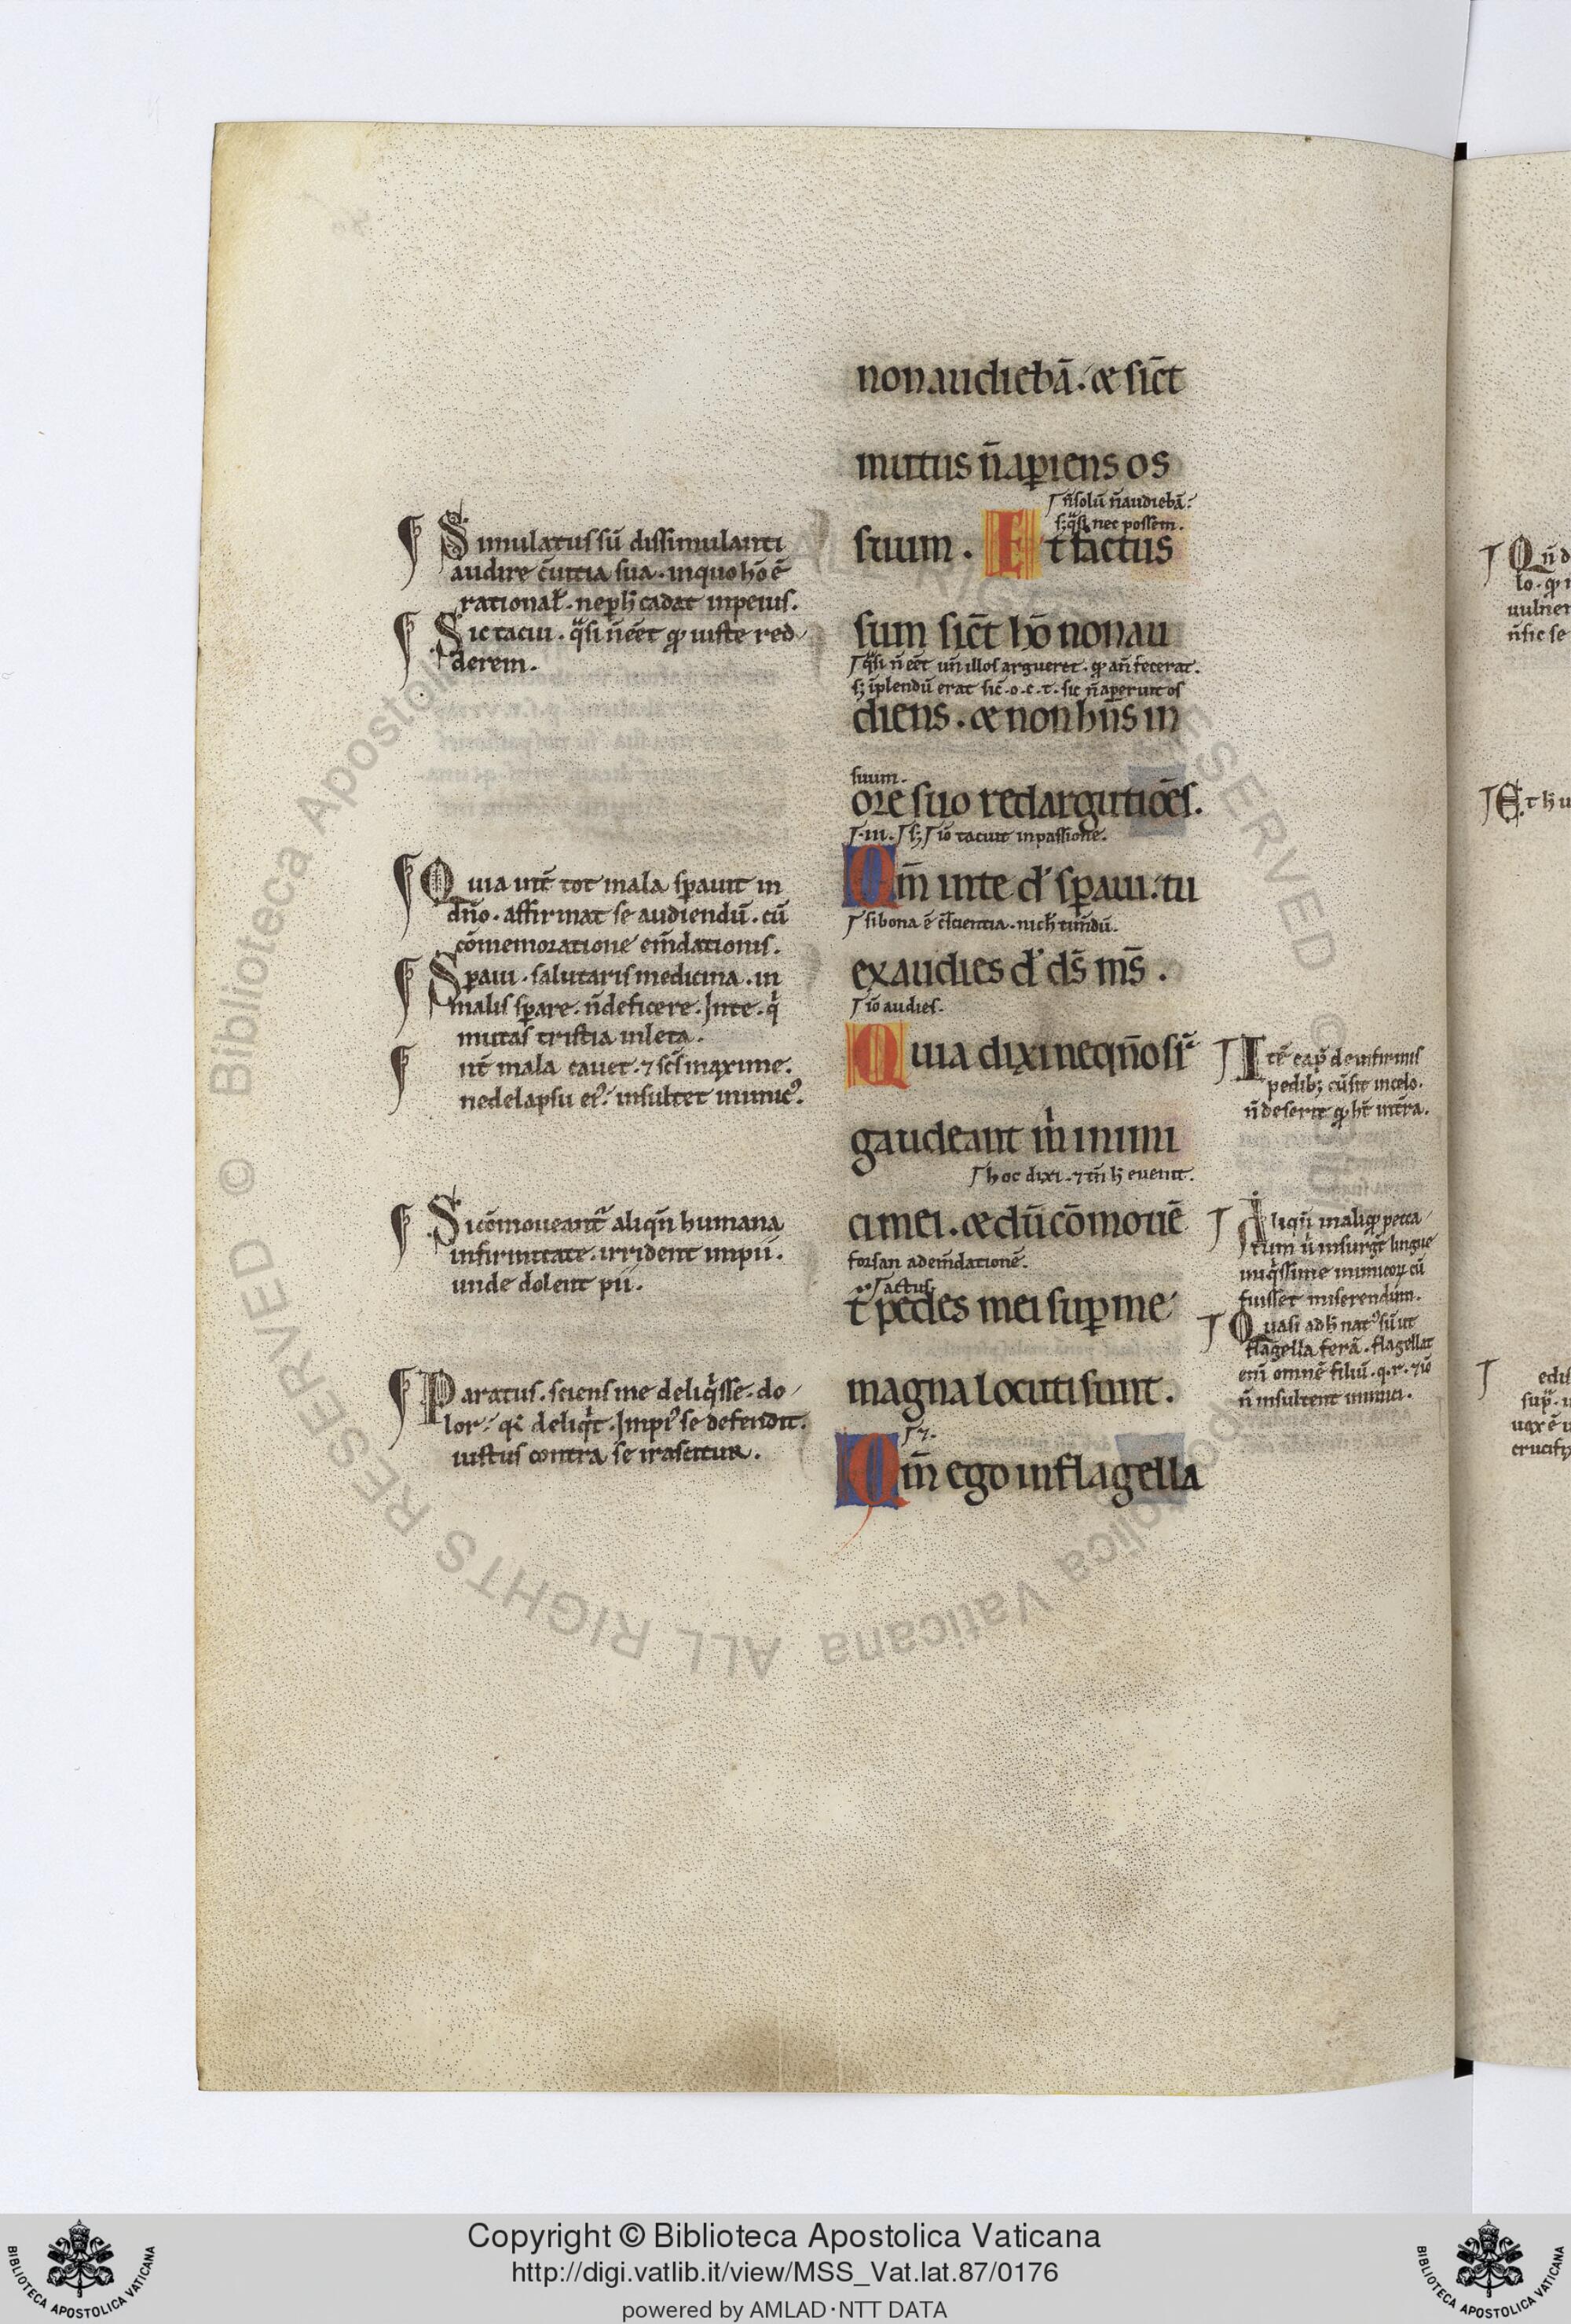 non audiebā. & sic̄t
mutus n̄ aꝑiens os
ñ solū ñ audiebā.
s; q̃si nec possem.
suum. Et factus
sum sic̄t hō non au
q̃si ñ eēt un̄ illos argueret. qđ an̄ fecerat.
s; īplendū erat sic̄. o. c. t. sic ñ aperuit os
diens. & non hn̄s in
suum.
ore suo redargutiōes.
iō tacuit in passione.
Qm̄ in te d̄ sꝑaui. tu
si bona ē c̄scientia. nich̄ timēdū.
exaudies d̄ ds̄ ms̄.
iō audies.
Quia dixi neqn̄o sr̄
gaudeant m̄ inimi
hoc dixi. ⁊ tn̄ h̄ euenit.
ci mei. & dū cōmouē
forsan ad em̄dationē.
actus.
t pedes mei suꝑ me
magna locuti sunt.
⁊.
Qm̄ ego in flagella
Simulatus sū dissimulanti
audire c̄uitia sua. in quo hō ē
rational̄. ne ꝑ h̄ cadat in peius.
Sic tacui. q̃si ñ eēt qđ iuste red
derem.
Quia int̄ tot mala sꝑauit in
dn̄o. affirmat se audiendū. cū
cōmemoratione em̄dationis.
Sꝑaui. salutaris medicina. in
malis sꝑare. ñ deficere. In te. q̇
mutas tristia in leta.
int̄ mala cauet. ⁊ sc̄s maxime.
ne de lapsu ei᾽ insultet inimic᾽.
Si cōmoueant᾽ aliqn̄ humana
infirmitate. irrident impii.
unde dolent pii.
Paratus. sciens me deliq̇sse. do
lor. q̇ deliq̇t. Impi᾽ se defendit.
iustus contra se irascitur.
Itē cap̄ de infirmis
pedib; cū sit in celo.
ñ deserit qđ ht̄ in tr̄a.
Aliqn̄ in aliqđ pecca
tum ñ insurgt̄ lingue
iniq̇ssime inimicoꝝ cū
fuisset miserendum.
Quasi ad h̄ nat᾽ sū ut
flagella ferā. flagellat
eni omnē filiū. q. r. ⁊ iō
ñ insultent inimici.
Copyright © Biblioteca Apostolica Vaticana
http://digi.vatlib.it/view/MSS_Vat.lat.87/0176
powered by AMLAD·NTT DATA
BIBLIOTECA APOSTOLICA VATICANA
BIBLIOTECA APOSTOLICA VATICANA